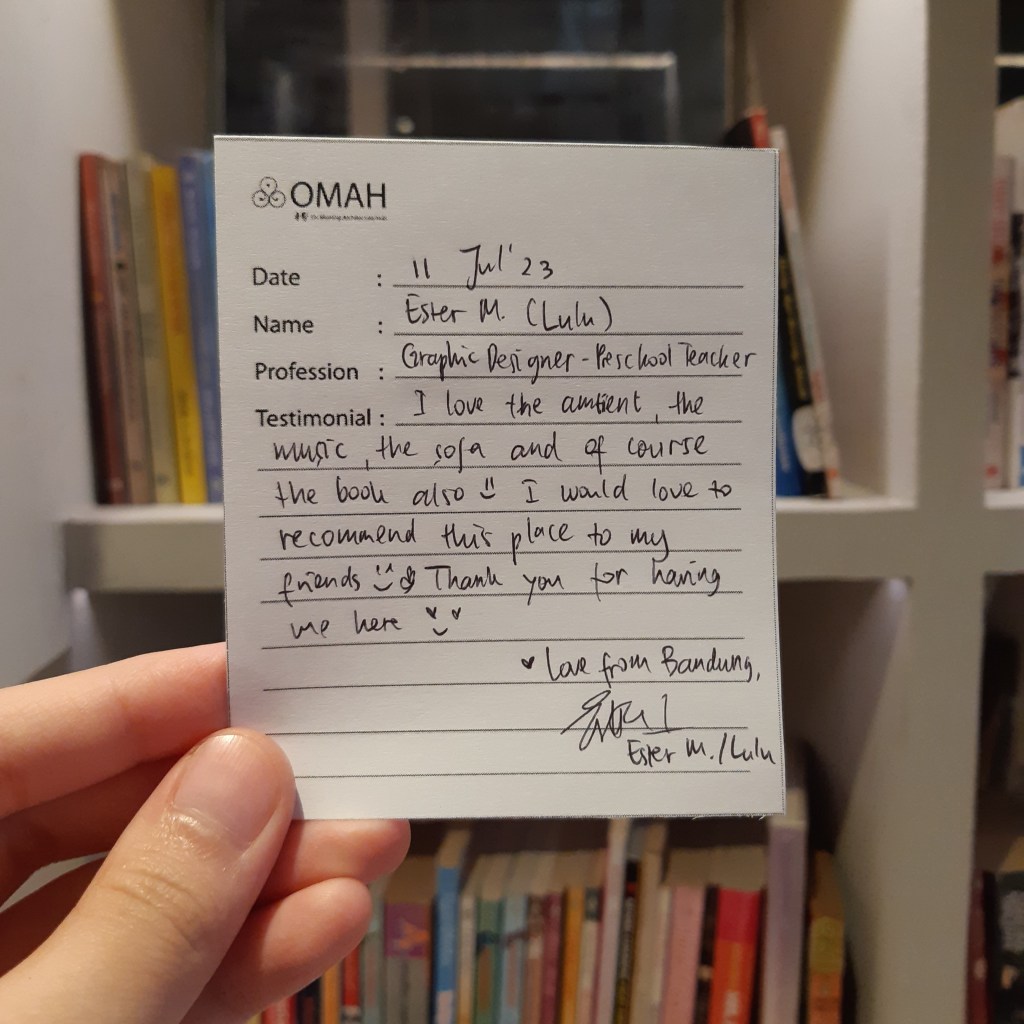 OMAH
Date : 11 Jul '23
Name : Ester M. (Lulu)
Profession : Graphic Designer - Preschool Teacher
Testimonial : I love the ambient, the
music, the sofa and of course
the book also I would love to
recommend this place to my
friends Thank you for having
me here
♥ Love from Bandung,
Ester M. / Lulu